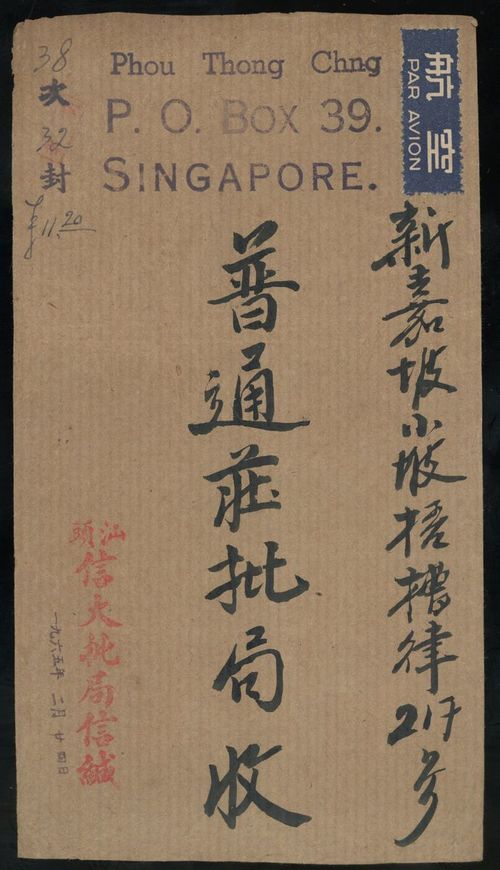 Phou Thong Chng
P. O. BOX 39.
SINGAPORE.
航空
PAR AVION
38
次
32
封
11.20
新嘉坡小坡梧槽律217号
普通莊批局收
汕頭
信大批局信緘
一九六五年 二月 廿四日